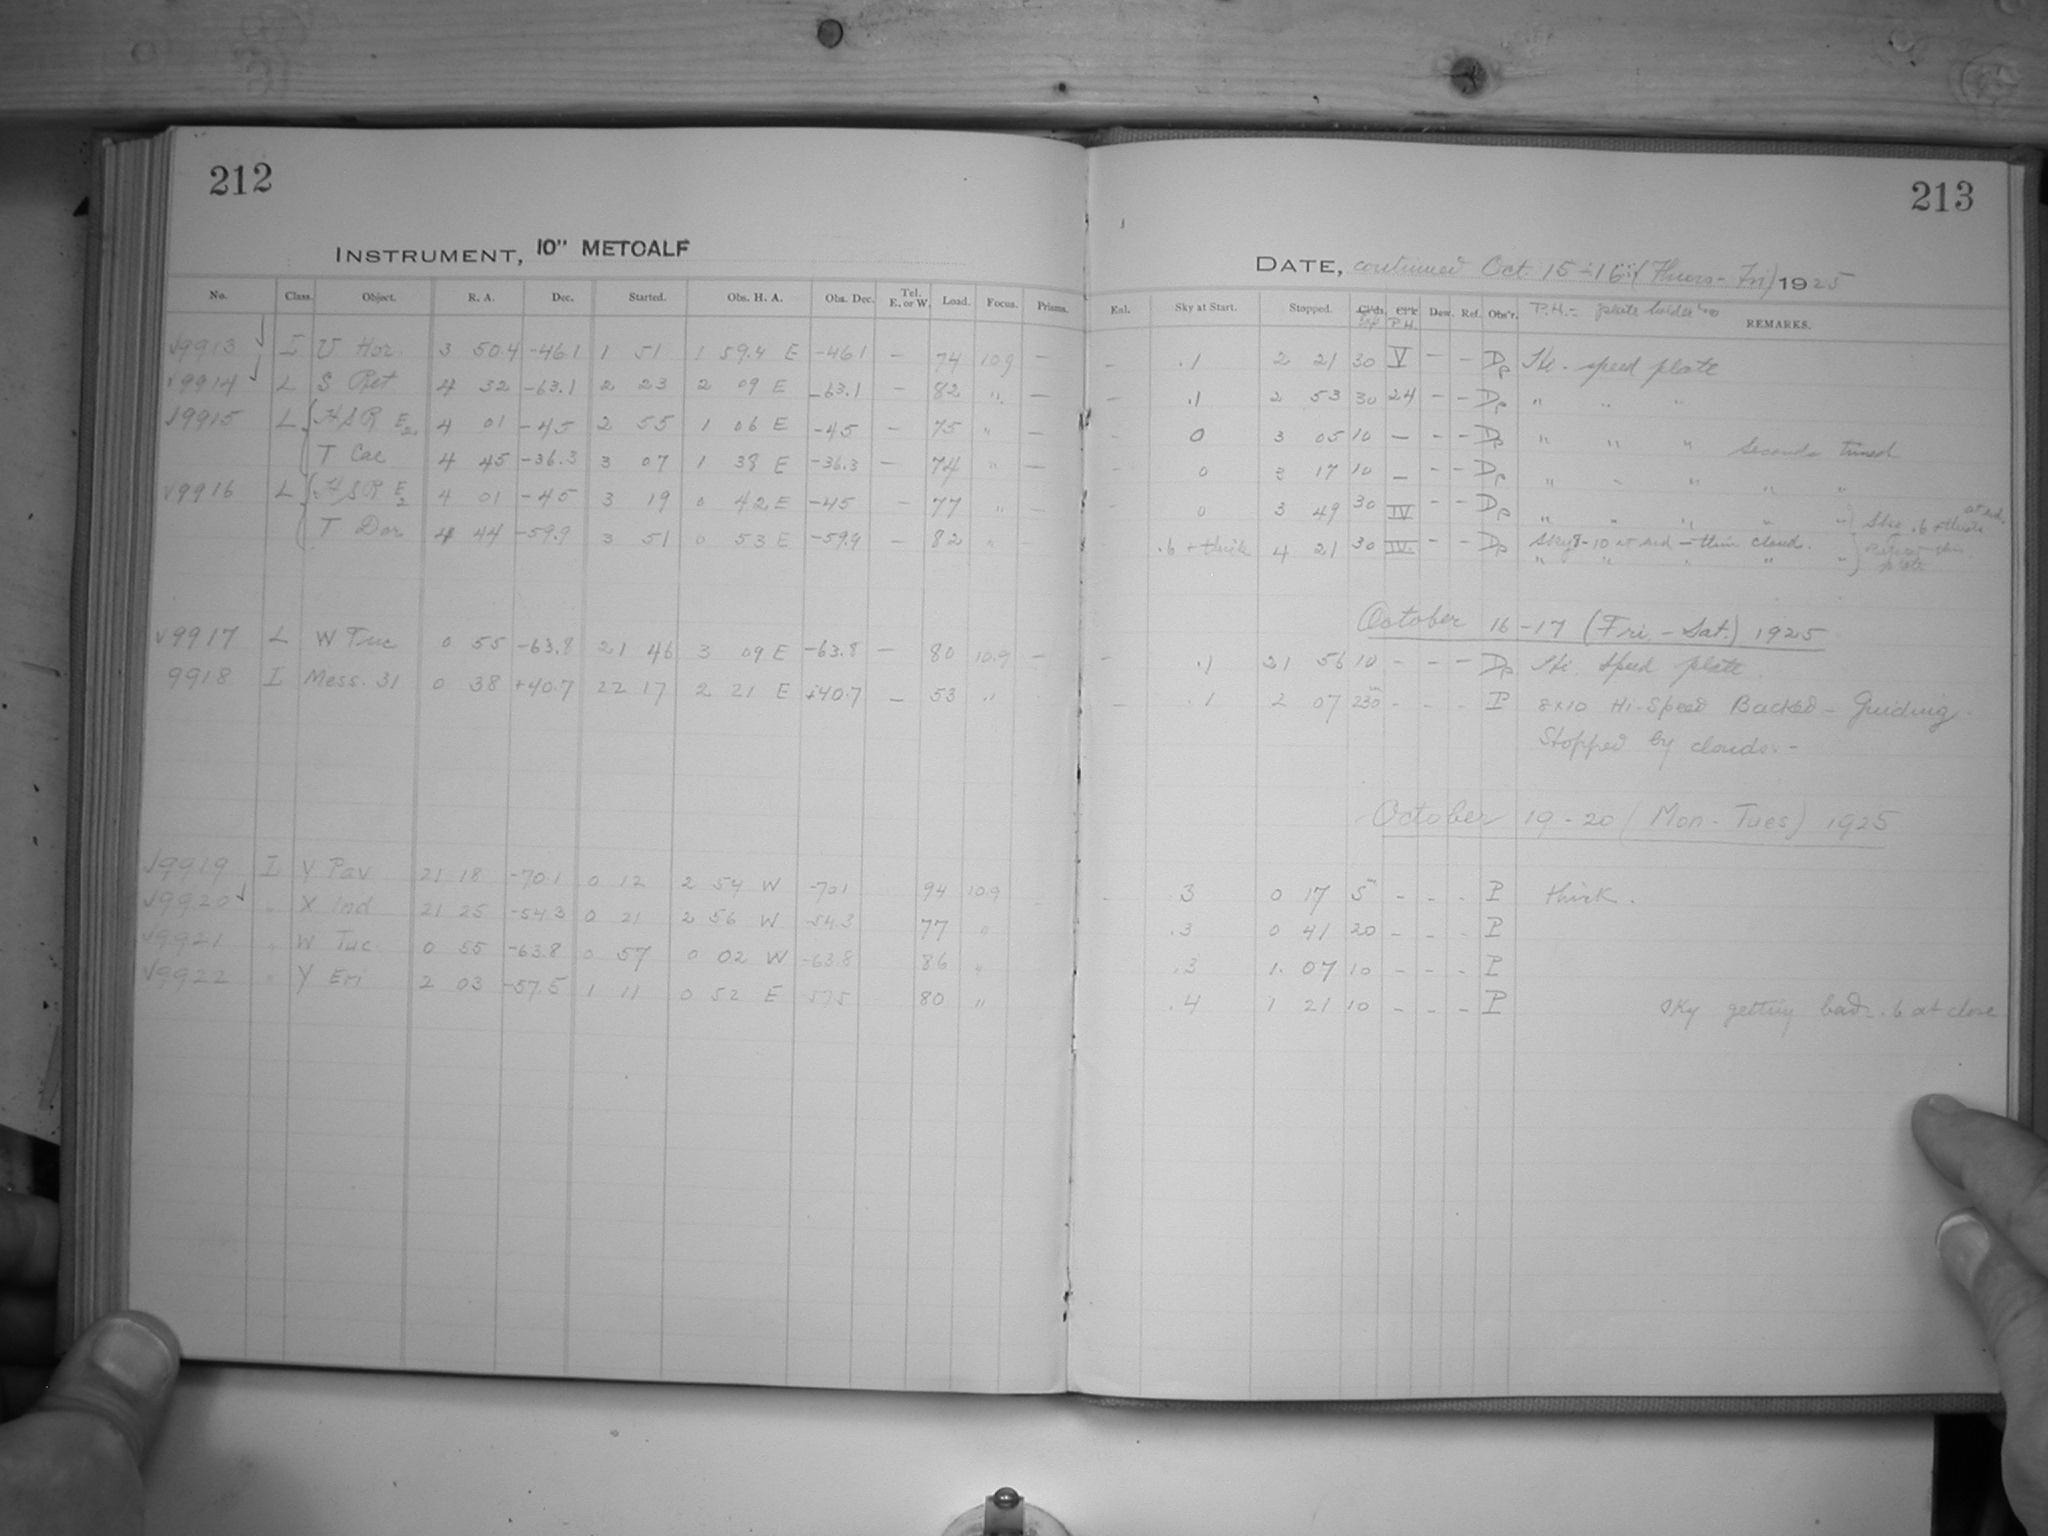 212
213
INSTRUMENT, 10" METCALF
DATE, continued Oct. 15-16 (Thurs-Fri) 1925
No. Class. Object. R. A. Dec. Started. Obs. H. A. Obs. Dec. Tel. E. or W. Load. Focus. Prisms.
Enl. Sky at Start. Stopped. Exp P.H. Dew. Ref. Obs'r. P.H. = plate holder REMARKS.
√9913 I U Hor. 3 50.4 -46.1 1 51 1 59.4 E -46.1 — 74 10.9 —
- .1 2 21 30 V - - Dp Hi-speed plate
√9914 L S Ret 4 32 -63.1 2 23 2 09 E -63.1 - 82 " —
- .1 2 53 30 24 - - Dp " " "
√9915 L HSR E2 4 01 -45 2 55 1 06 E -45 - 75 " —
- 0 3 05 10 - - - Dp " " " Seconds timed
T Cae 4 45 -36.3 3 07 1 38 E -36.3 — 74 " —
- 0 3 17 10 - - - Dp " " " " "
√9916 L HSR E2 4 01 -45 3 19 0 42 E -45 - 77 " —
0 3 49 30 IV - - Dp " " " " " Sky .6 + thick at end.
T Dor 4 44 -59.9 3 51 0 53 E -59.9 - 82 " -
.6 + thick 4 21 30 IV - - Dp Sky 8-10 at end - thin cloud.
" " " " " Repeat this plate
October 16-17 (Fri - Sat.) 1925
√9917 L W Tuc 0 55 -63.8 21 46 3 09 E -63.8 — 80 10.9 —
- .1 21 56 10 - - - Dp Hi speed plate
9918 I Mess. 31 0 38 +40.7 22 17 2 21 E +40.7 — 53 "
- .1 2 07 230m - - - P 8x10 Hi-Speed Backed - Guiding.
Stopped by clouds. -
October 19-20 (Mon-Tues) 1925
√9919 I Y Pav 21 18 -70.1 0 12 2 54 W -70.1 94 10.9
- .3 0 17 5m - - - P thick.
√9920 " X Ind 21 25 -54.3 0 21 2 56 W -54.3 77 "
.3 0 41 20 - - - P
√9921 " W Tuc 0 55 -63.8 0 57 0 02 W -63.8 86 "
.3 1 07 10 - - - P
√9922 " Y Eri 2 03 -57.5 1 11 0 52 E -57.5 80 "
.4 1 21 10 - - - P Sky getting bad - .6 at close